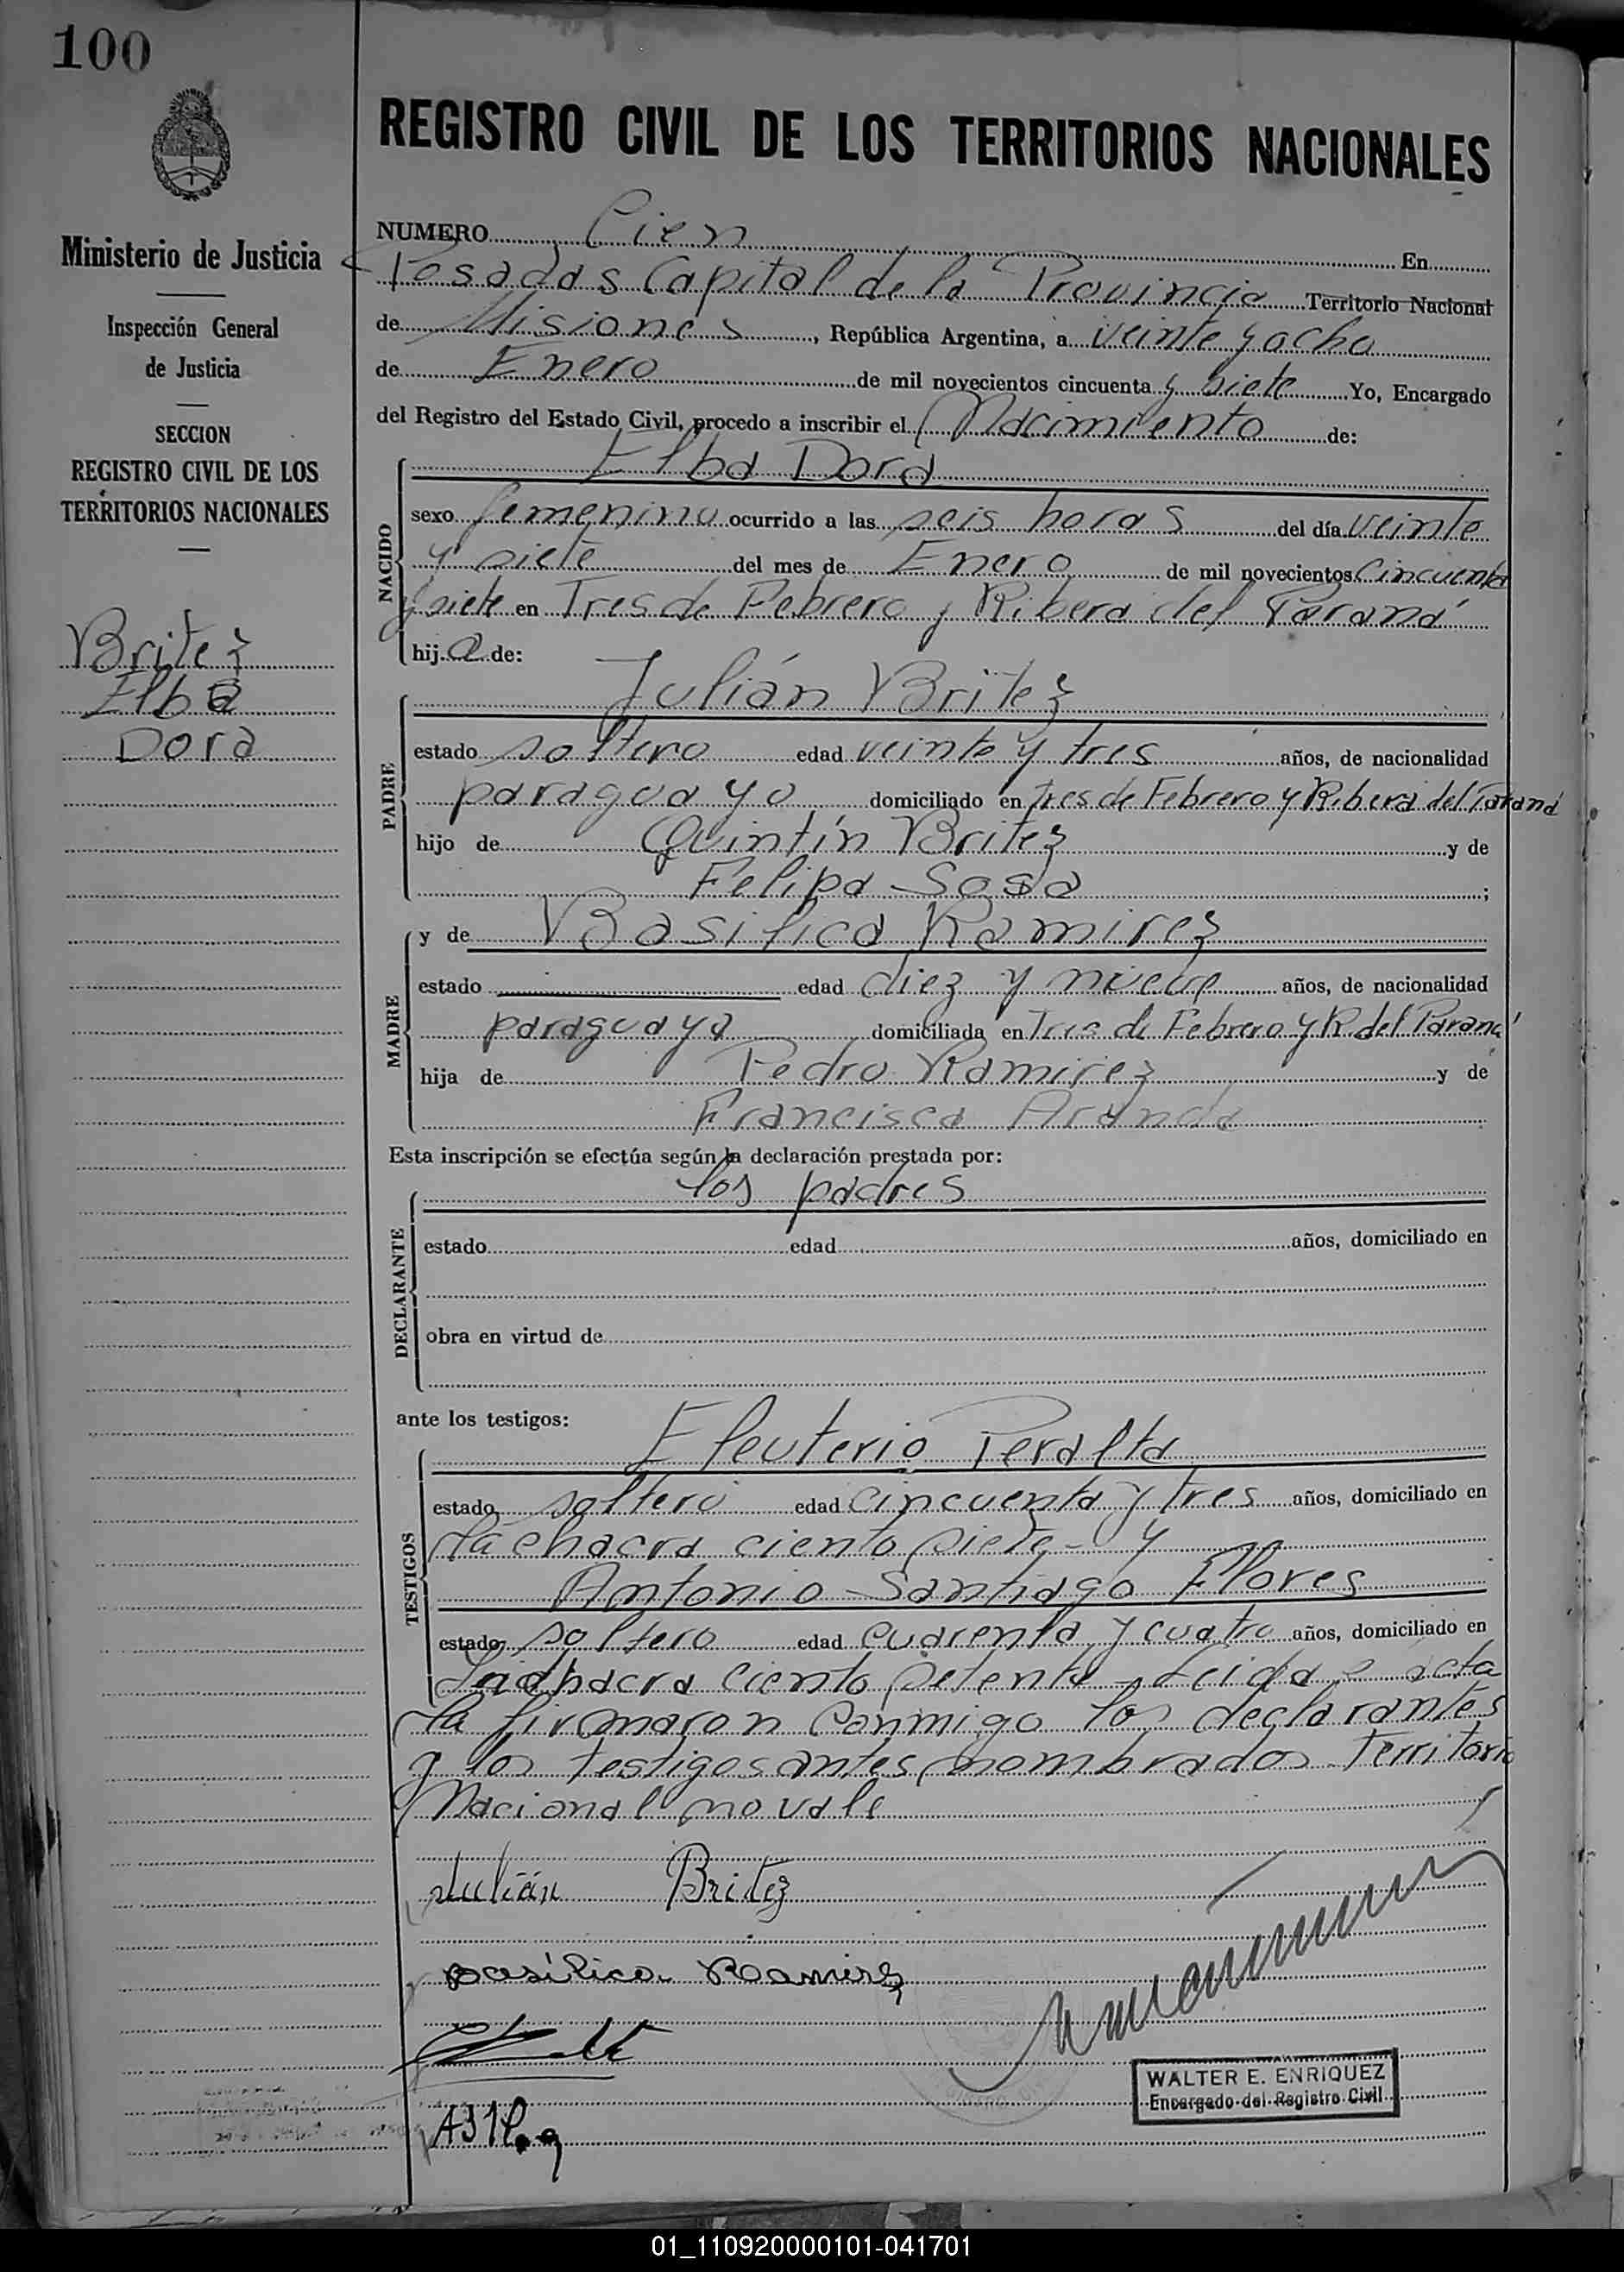 100
REGISTRO CIVIL DE LOS TERRITORIOS NACIONALES
Ministerio de Justicia
Inspección General
de Justicia
SECCION
REGISTRO CIVIL DE LOS
TERRITORIOS NACIONALES
Britez
Elba
Dora
NUMERO Cien En
Posadas Capital de la Provincia Territorio Nacional
de Misiones, República Argentina, a veinte y ocho
de Enero de mil novecientos cincuenta y siete Yo, Encargado
del Registro del Estado Civil, procedo a inscribir el Nacimiento de:
NACIDO
Elba Dora
sexo femenino ocurrido a las seis horas del día veinte
y siete del mes de Enero de mil novecientos cincuenta
y siete en Tres de Febrero y Ribera del Paraná
hij a de:
PADRE
Julián Britez
estado soltero edad veinte y tres años, de nacionalidad
paraguayo domiciliado en Tres de Febrero y Ribera del Paraná
hijo de Quintín Britez y de
Felipa Sosa ;
MADRE
y de Basilica Ramirez
estado edad diez y nueve años, de nacionalidad
paraguaya domiciliada en Tres de Febrero y R. del Paraná
hija de Pedro Ramirez y de
Francisca Aranda
Esta inscripción se efectúa según la declaración prestada por:
DECLARANTE
los padres
estado edad años, domiciliado en
obra en virtud de
ante los testigos:
TESTIGOS
Eleuterio Peralta
estado soltero edad cincuenta y tres años, domiciliado en
la chacra ciento siete - y
Antonio Santiago Flores
estado soltero edad cuarenta y cuatro años, domiciliado en
la chacra ciento setenta - Leida acta
la firmaron conmigo los declarantes
y los testigos antes nombrados. Territorio
Nacional no vale
Julián Britez
basílica Ramirez
WALTER E. ENRIQUEZ
Encargado del Registro Civil
01_110920000101-041701